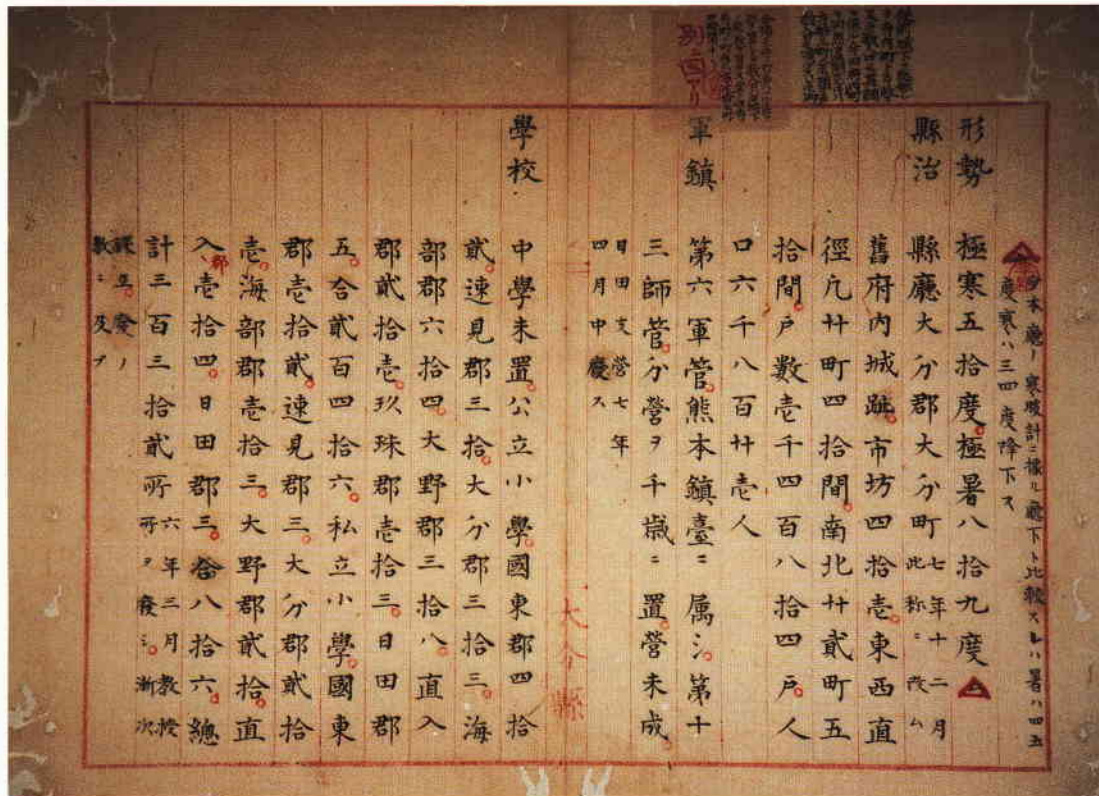 今本廳ノ寒暖計ニ據ル廳下ト比較スレハ暑ハ四五
度寒ハ三四度降下ス
形勢 極寒五拾度極暑八拾九度
縣治 縣廳大分郡大分町七年十二月此称ニ改ム
舊府内城趾市坊四拾壱東西直
徑凢廿町四拾間南北廿貳町五
拾間戸數壱千四百八拾四戸人
口六千八百廿壱人
軍鎮 第六軍管熊本鎮臺ニ属シ第十
三師管分營ヲ千歳ニ置營未成
日田支營七年四月中廢ス
大分縣
學校 中學未置公立小學國東郡四拾
貳速見郡三拾大分郡三拾三海
部郡六拾四大野郡三拾八直入
郡貳拾壱玖珠郡壱拾三日田郡
五合貳百四拾六私立小學國東
郡壱拾貳速見郡三大分郡貳拾
壱海部郡壱拾三大野郡貳拾直
入郡壱拾四日田郡三合八拾六總
計三百三拾貳所六年三月教授所ヲ廢シ漸次
數ニ及フ